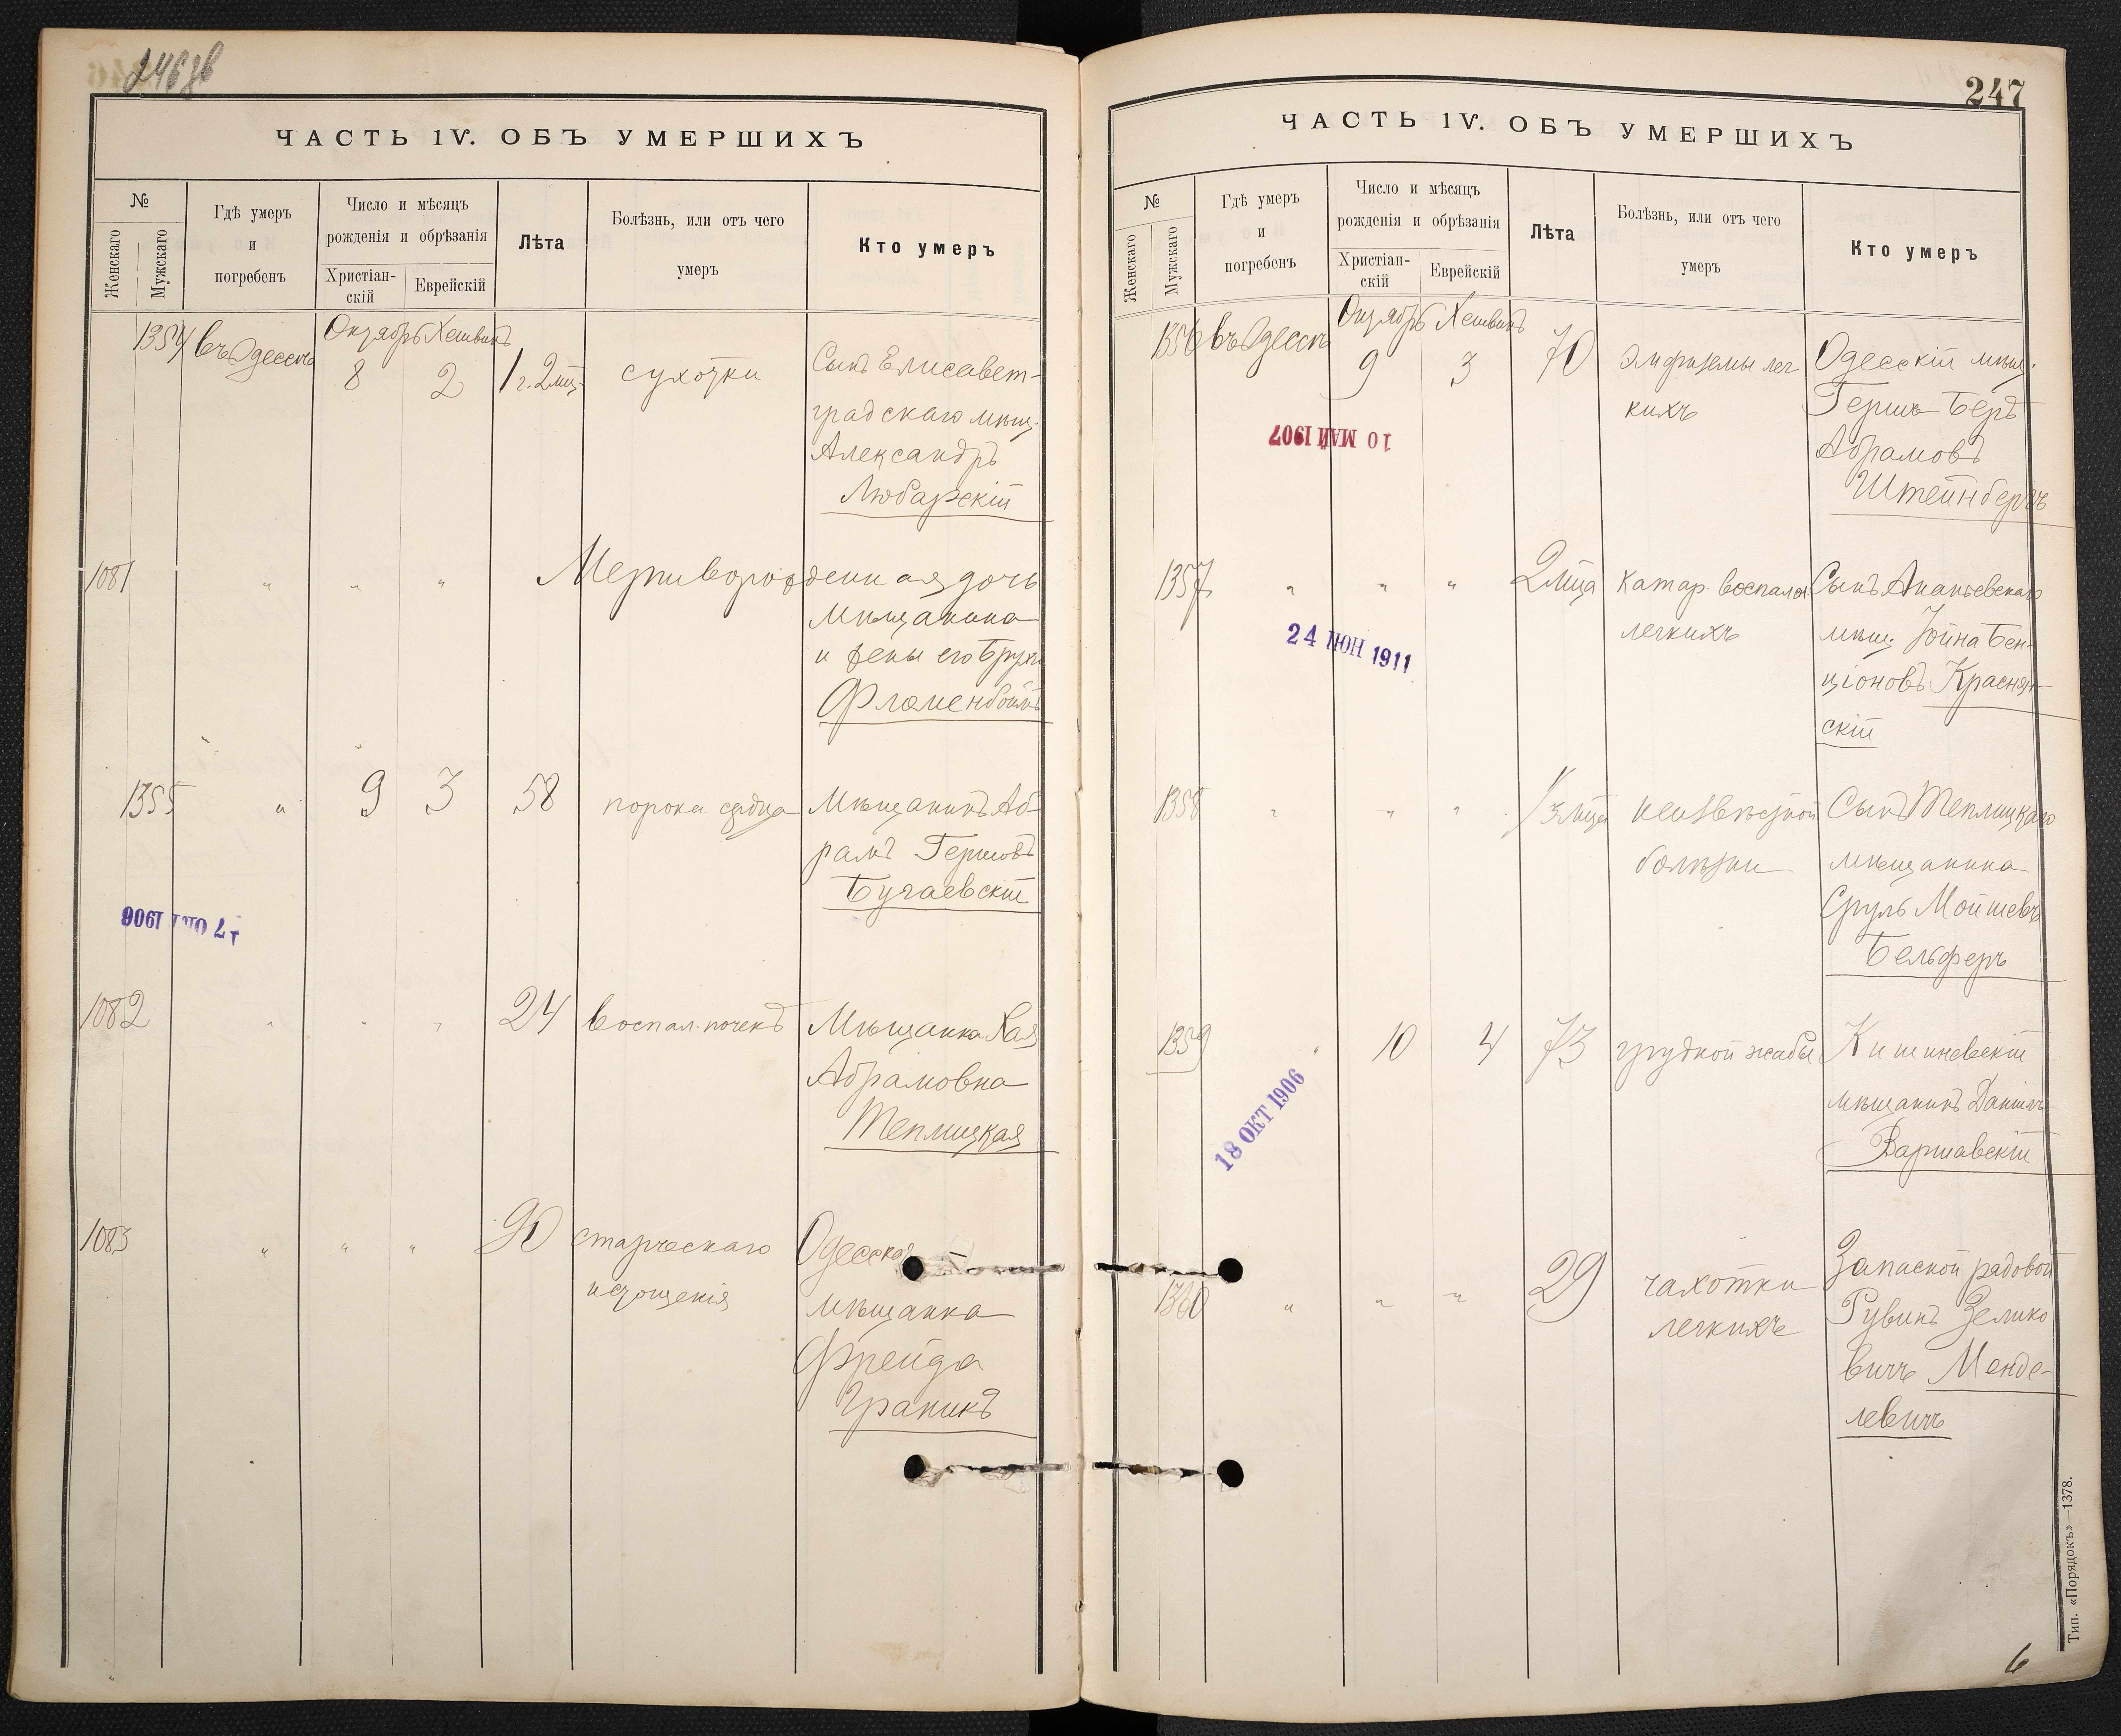 246 зв
ЧАСТЬ IV. ОБЪ УМЕРШИХЪ
№
Женскаго
Мужскаго
Гдѣ умеръ
и
погребенъ
Число и мѣсяцъ
рожденія и обрѣзанія
Христіан-
скій
Еврейскій
Лѣта
Болѣзнь, или отъ чего
умеръ
Кто умеръ
Октябрь Хешвинъ
1354 въ Одессѣ 8 2 1 г. 2 мц. сухотки
Сынъ Елисавет-
градскаго мѣщ.
Александръ
Любарскій
1081 " " " Мертворожденная дочь
мѣщанина
и жены его
1355 " 9 3 58 порока сердца Мѣщанинъ Аб-
рамъ Гершовъ
Бугаевскій
17 ОКТ 1906
1082 " " " 24 воспал. почекъ Мѣщанка Хая
Абрамовна
Теплицкая
1083 " " " 90 старческаго Одесская
истощенія мѣщанка
Фрейда
Граникъ
247
ЧАСТЬ IV. ОБЪ УМЕРШИХЪ
№
Женскаго
Мужскаго
Гдѣ умеръ
и
погребенъ
Число и мѣсяцъ
рожденія и обрѣзанія
Христіан-
скій
Еврейскій
Лѣта
Болѣзнь, или отъ чего
умеръ
Кто умеръ
Октябрь Хешвинъ
1356 въ Одессѣ 9 3 70 эмфиземы лег Одесскій мѣщ.
кихъ Гершъ Беръ
Абрамовъ
Штейнбергъ
10 МАЙ 1907
1357 " " " 2 мца катар. воспален. Сынъ Ананьевскаго
легкихъ мѣщ. Іойна Бен-
ціоновъ Краснян-
скій
24 ІЮН 1911
1358 " " " 1/3 мца неизвѣстной Сынъ Теплицкаго
болѣзни мѣщанина
Сруль Мойшевъ
Бельферъ
1359 " 10 4 73 грудной жабы Кишиневскій
мѣщанинъ Даніилъ
Варшавскій
18 ОКТ 1906
1360 " " " 29 чахотки Запасной рядовой
легкихъ Рувинъ Зелико
вичъ Менде-
левичъ
Тип. «Порядокъ»—1378.
6